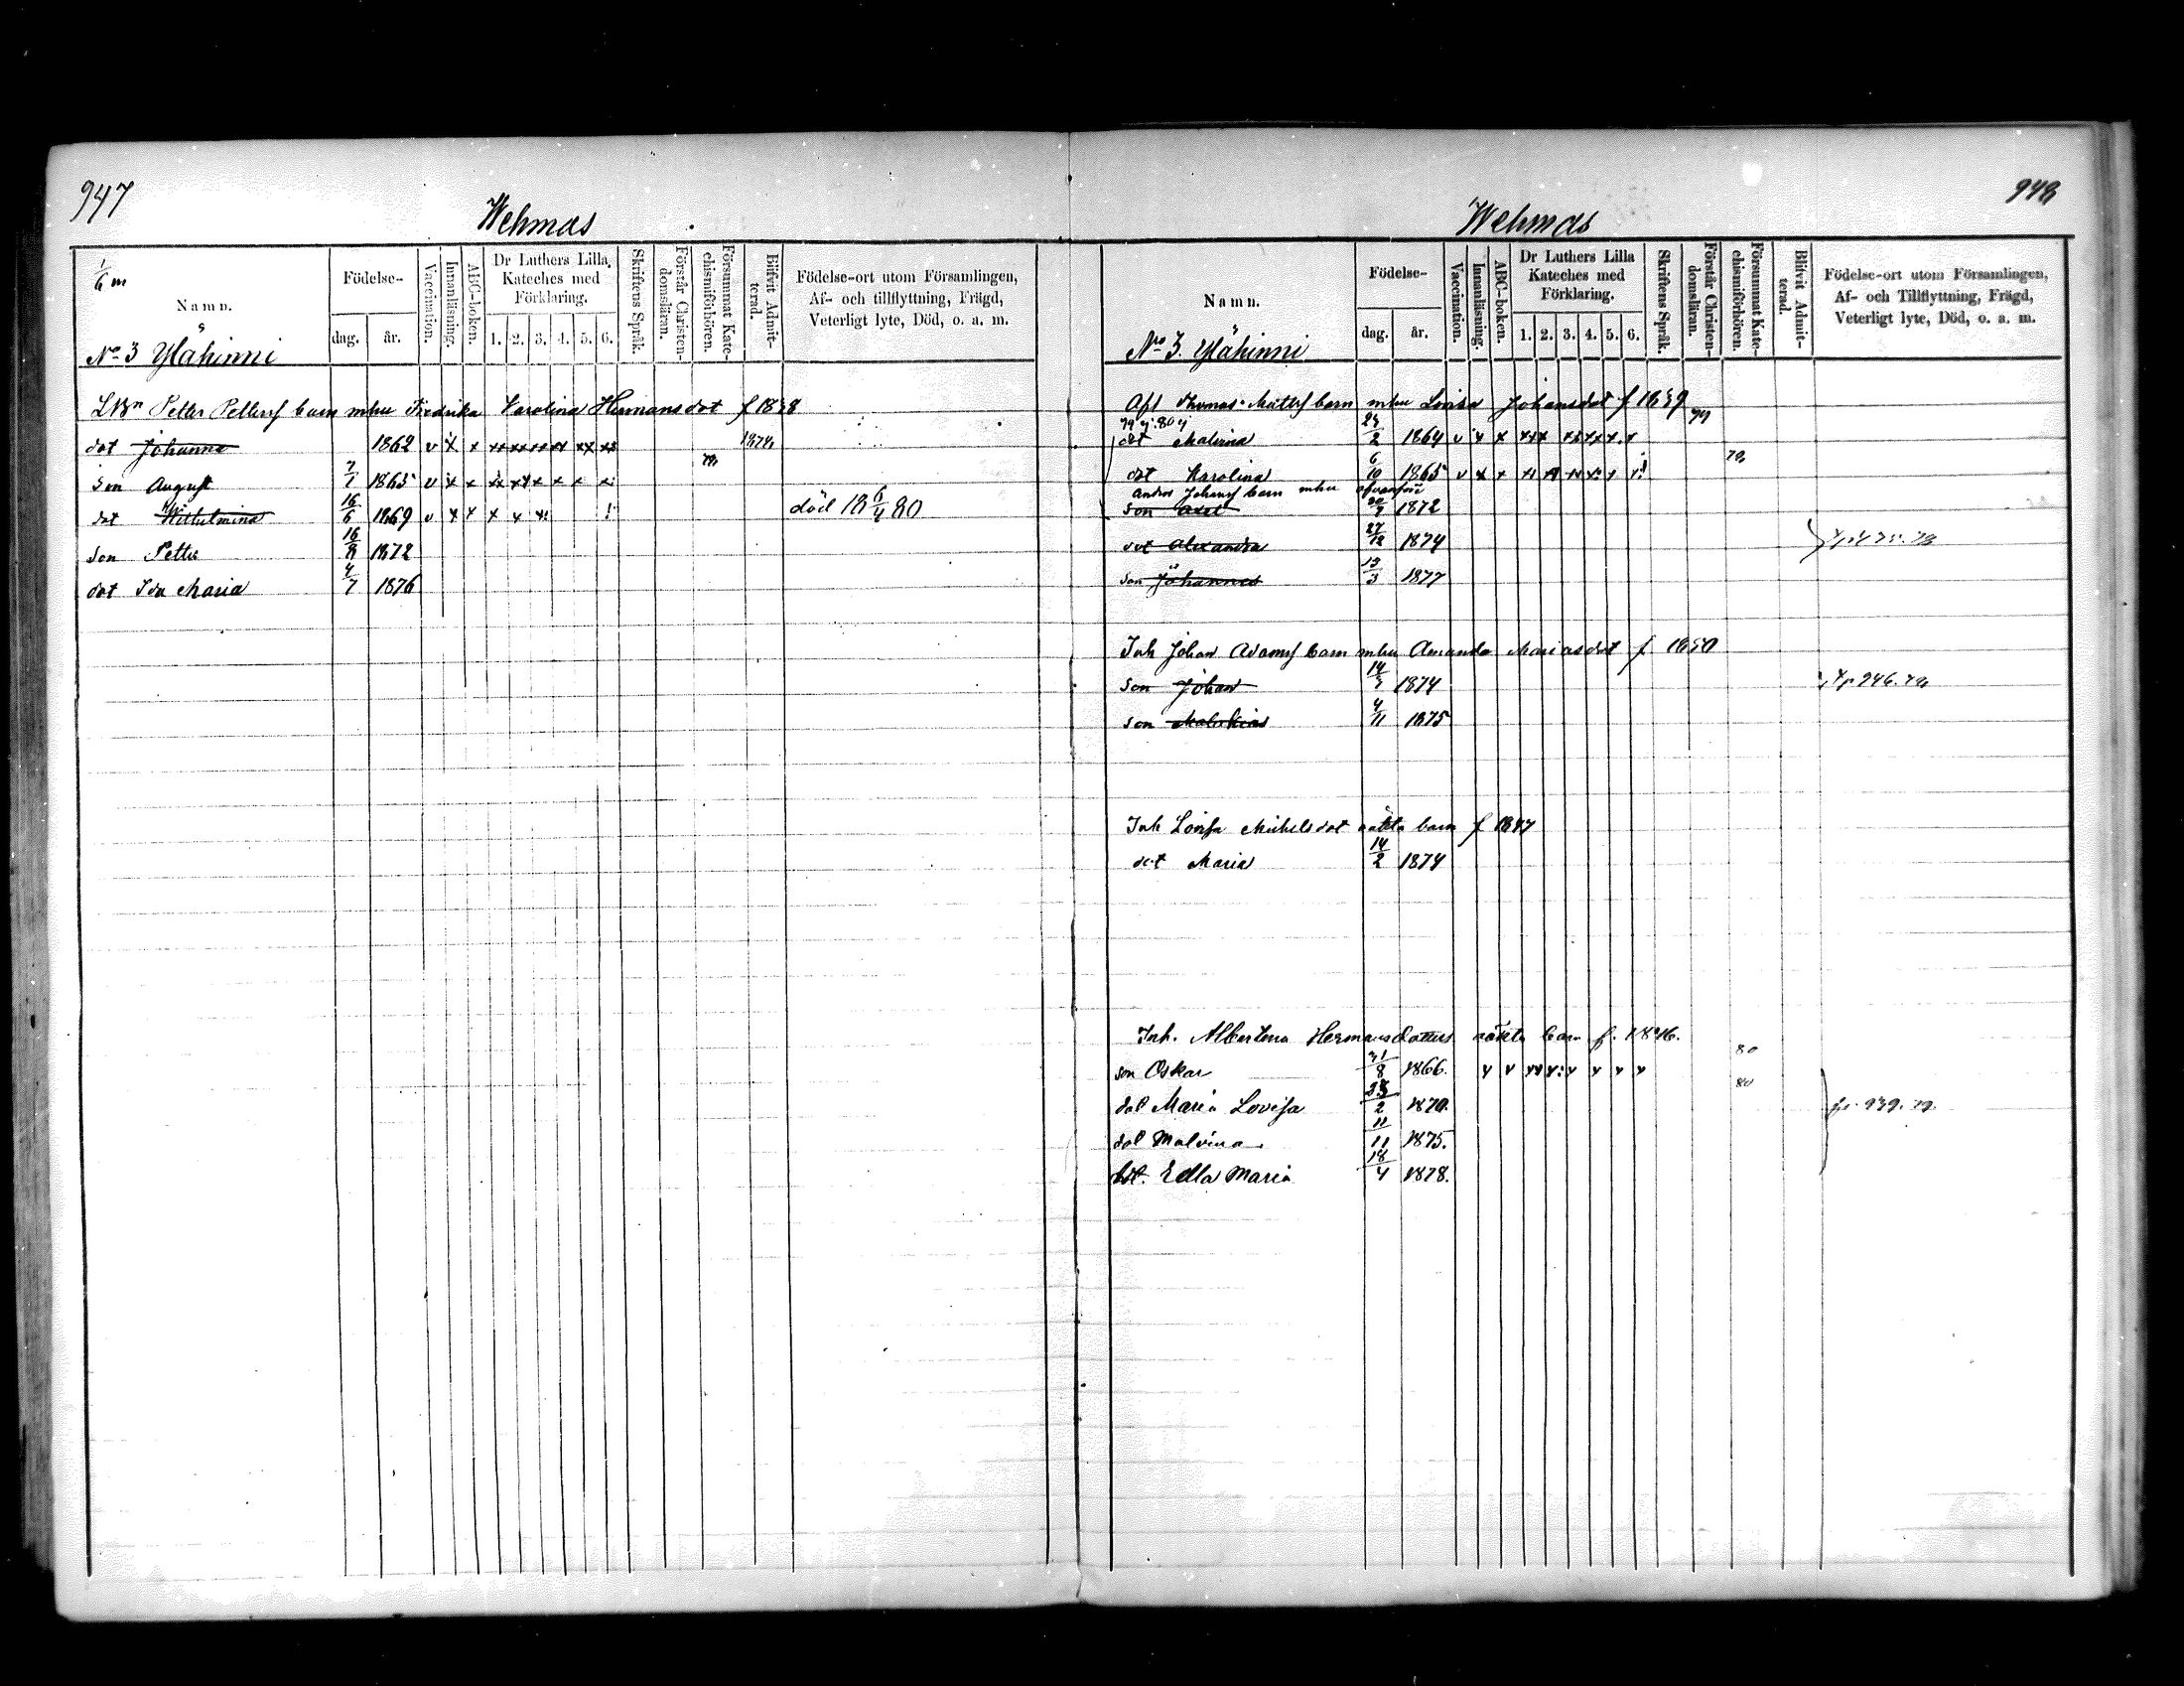 947
Wehmas
1/6 m
Namn.
Födelse-
dag. år.
Vaccination.
Innanläsning.
ABC-boken.
Dr Luthers Lilla
Kateches med
Förklaring.
1. 2. 3. 4. 5. 6.
Skriftens Språk.
Förstår Christen-
domsläran.
Försummat Kate-
chismiförhören.
Blifvit Admit-
terad.
Födelse-ort utom Församlingen,
Af- och tillflyttning, Frägd,
Veterligt lyte, Död, o. a. m.
No 3 Ylähinni
Petter barn mhu Fredrika Karolina Hermansdot f 1838
dot Johanna 1862 v x x 1878
son August 7/7 1865 v x x
dot Wilhelmina 16/6 1869 v x x x x x! ! död 18 6/4 80
son Petter 16/8 1872
dot Ida Maria 4/7 1876
948
Wehmas
Namn.
Födelse-
dag. år.
Vaccination.
Innanläsning.
ABC-boken.
Dr Luthers Lilla
Kateches med
Förklaring.
1. 2. 3. 4. 5. 6.
Skriftens Språk.
Förstår Christen-
domsläran.
Försummat Kate-
chismiförhören.
Blifvit Admit-
terad.
Födelse-ort utom Församlingen,
Af- och Tillflyttning, Frägd,
Veterligt lyte, Död, o. a. m.
No 3. Ylähinni
Thomas barn mhu Lovisa Johansdot f 1839
dot 1864 v x x
dot Karolina 6/10 1865 v x x 78
barn mhu
son Axel 1872
dot Alexandra 27/12 1874
son Johannes 1877
Inh Johan barn mhu Amanda f 1850
son Johan 1874 946. 78
son Malakias 4/11 1875
Inh Lovisa Mickelsdot oäkta barn f 1847
dot Maria 14/2 1874
Inh. Albertina Hermansdotters oäkta barn f. 1846.
son Oskar 31/8 1866. 80
dot Maria Lovisa 2 1870. 80 fr. 939. 79.
dot Malvina. 11/11 1875.
dot. Edla Maria 18/4 1878.